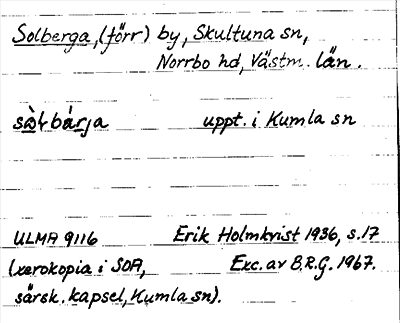 Solberga, (förr) by, Skultuna sn,
Norrbo hd, Västm. län.
sò̀ɫbárja uppt. i Kumla sn
ULMA 9116 Erik Holmkvist 1936, s. 17
(xerokopia i SOA, Exc. av B.R.G. 1967.
särsk. kapsel, Kumla sn).